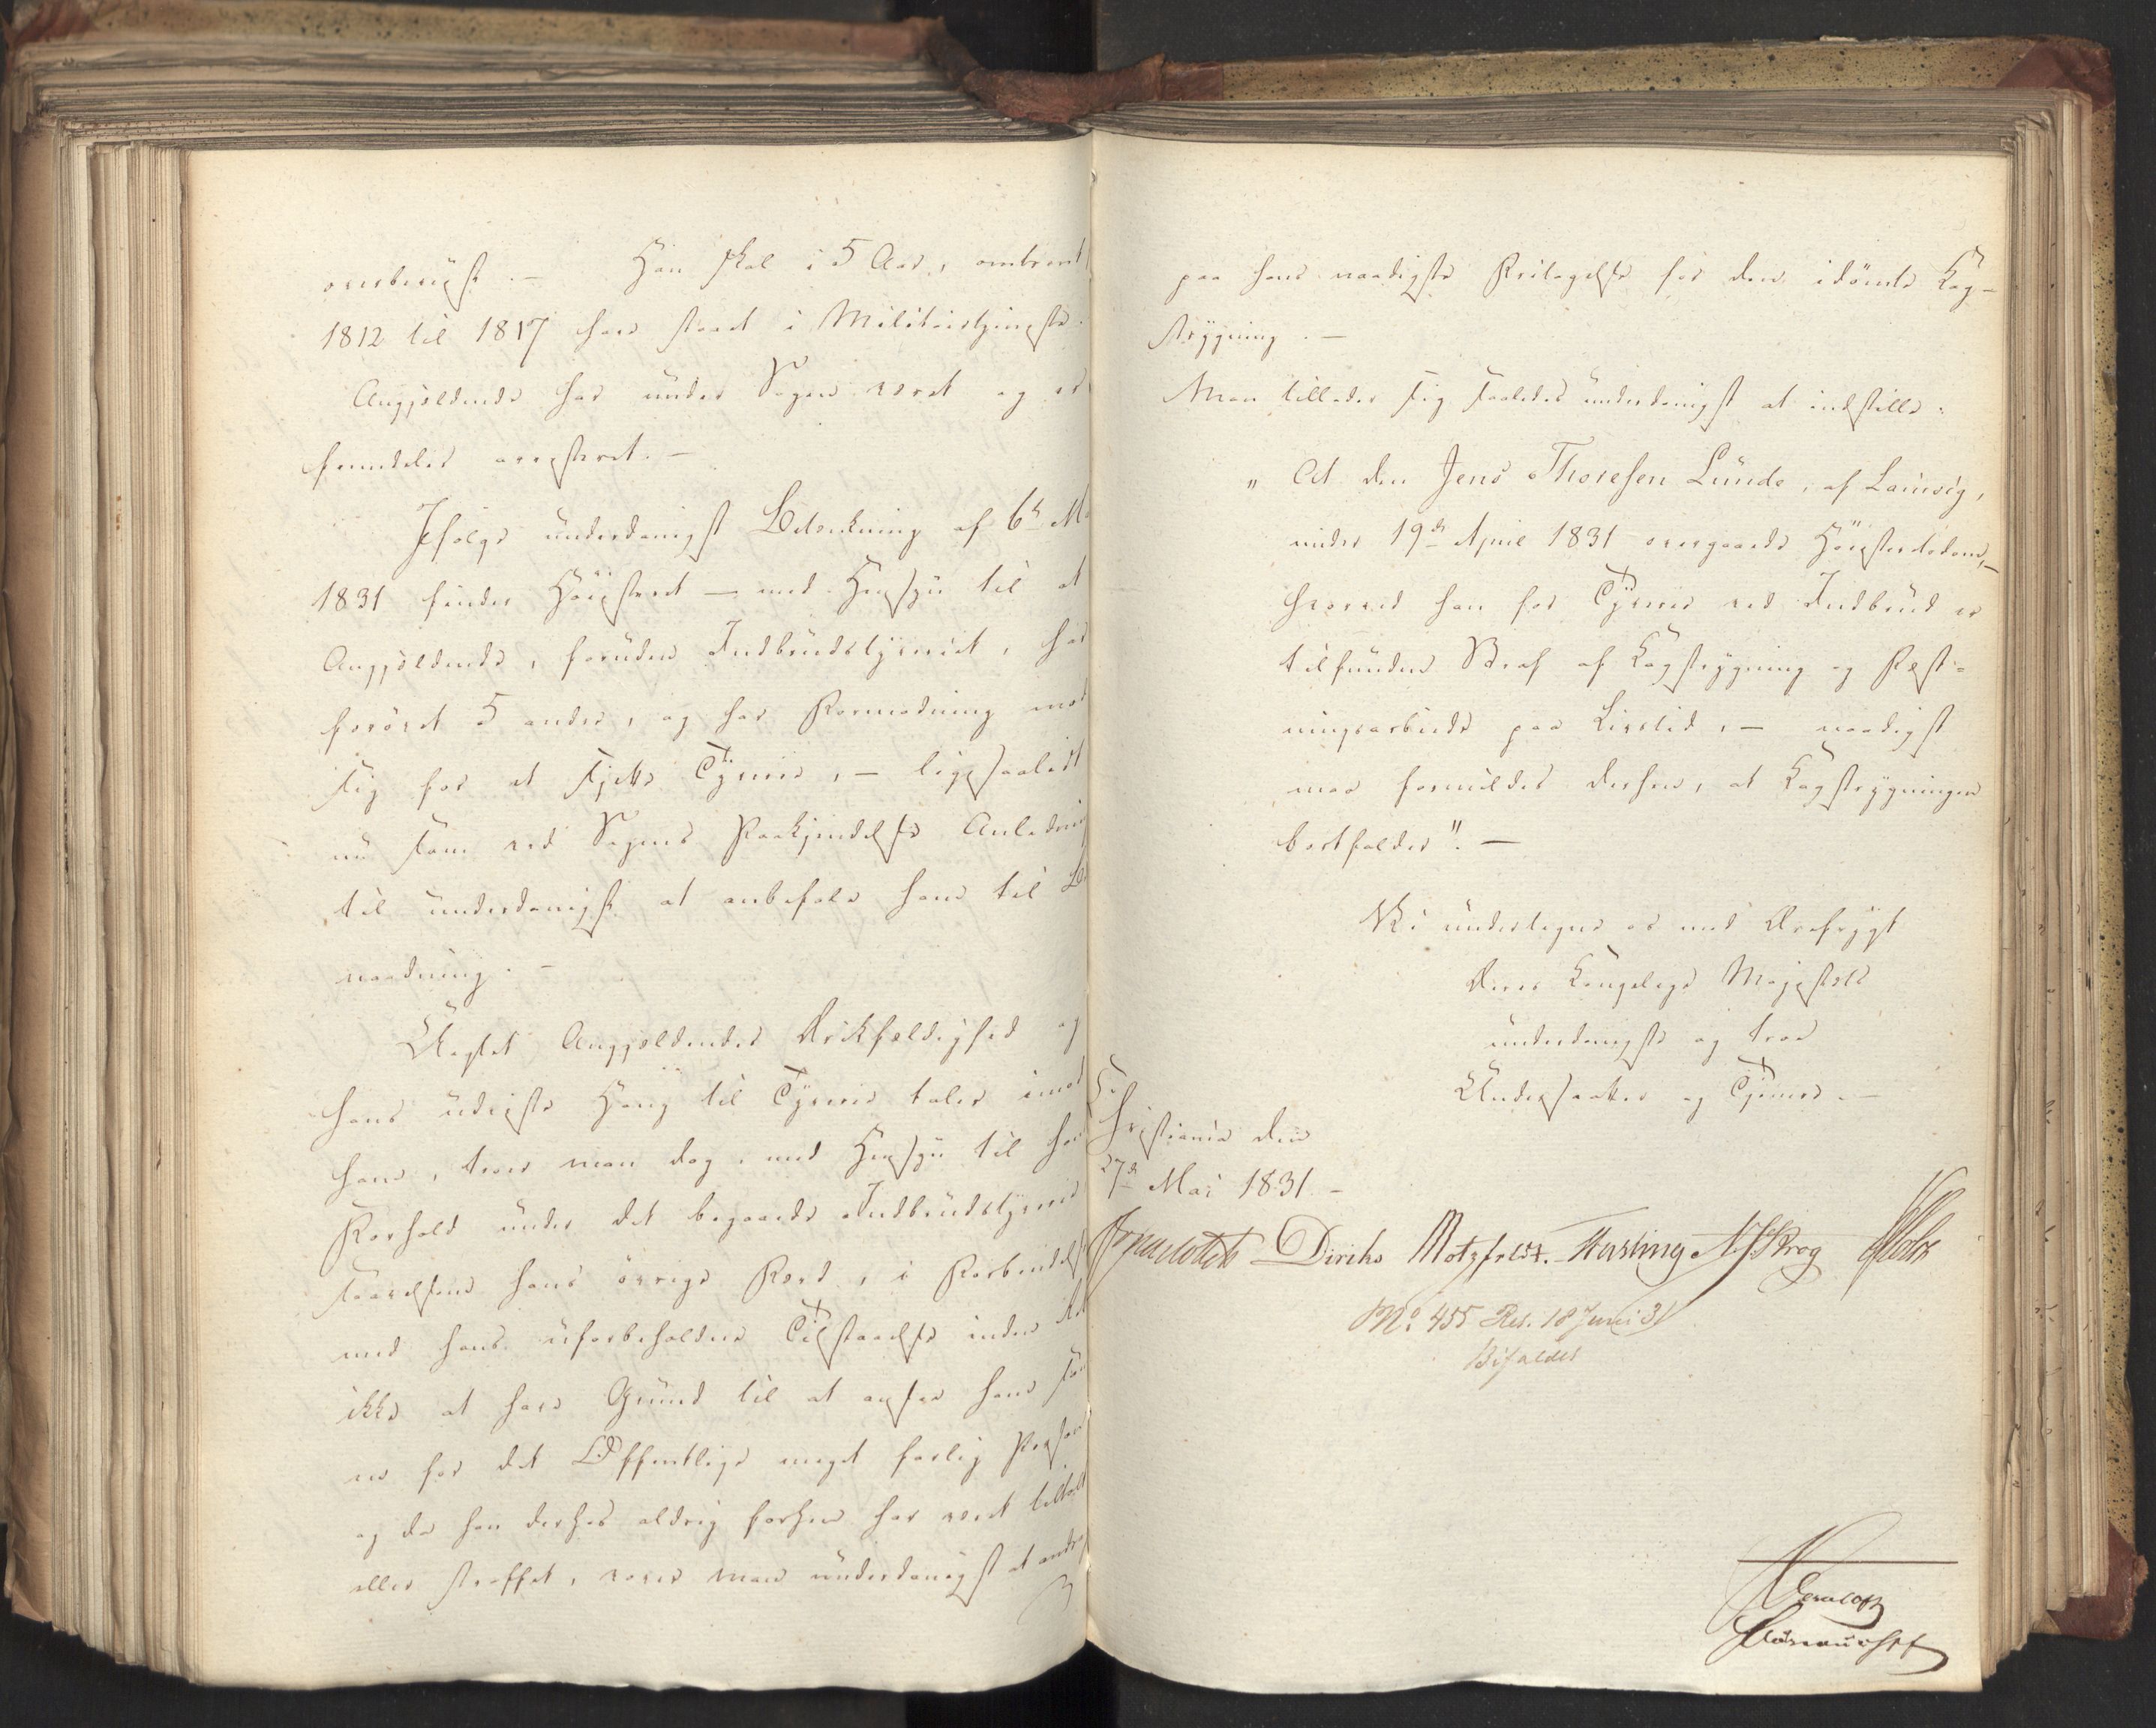 overbeviist. — Han skal i 5 Aar, omtrent
1812 til 1817 have staaet i Militairtjeneste.
Angjeldende har under Sagen været og er
fremdeles arresteret. —
Ifølge underdanigst Betænkning af 6te
1831 finder Höiesteret — med Hensyn til at
Angjeldende, foruden Indbrudstyveriet, har
forövet 5 andre, og har Formodning mod
sig for et sjette Tyverie, — ligesaalidt
nu som ved Sagens Paakjendelse Anledning
til underdanigst at anbefale ham til
naadning. —
Uagtet Angjeldendes Drikfældighed og
hans udviste Hang til Tyverie taler imod
ham, troer man dog, med Hensyn til hans
Forhold under det begaaede Indbrudstyverie
saavelsom hans övrige Færd, i Forbindelse
med hans uforbeholdne Tilstaaelse inden
ikke at have Grund til at ansee ham som
en for det Offentlige meget farlig Person
og da han derhos aldrig forhen har været tiltalt
eller straffet, vover man underdanigst at andra
paa hans naadigste Fritagelse for den idömte Kag-
strygning. —
Man tillader sig saaledes underdanigst at indstille:
"At den Jens Thoresen Lunde, af Laurvig,
under 19de April 1831 overgaaede Höiesteretsdom, —
hvorved han for Tyverie ved Indbrud er
tilfunden Straf af Kagstrygning og Fæst-
ningsarbeide paa Livstid, — naadigst
maa formildes derhen, at Kagstrygningen
bortfalder". —
Vi undertegne os med Ærefrygt
Deres Kongelige Majestæts
underdanigste og troe
Undersaatter og Tjenere. —
Christiania den
27de Mai 1831 —
Diriks Motzfeldt. Hersleng Krog
No. 455 Res. 18 Juni 31
Bifaldet